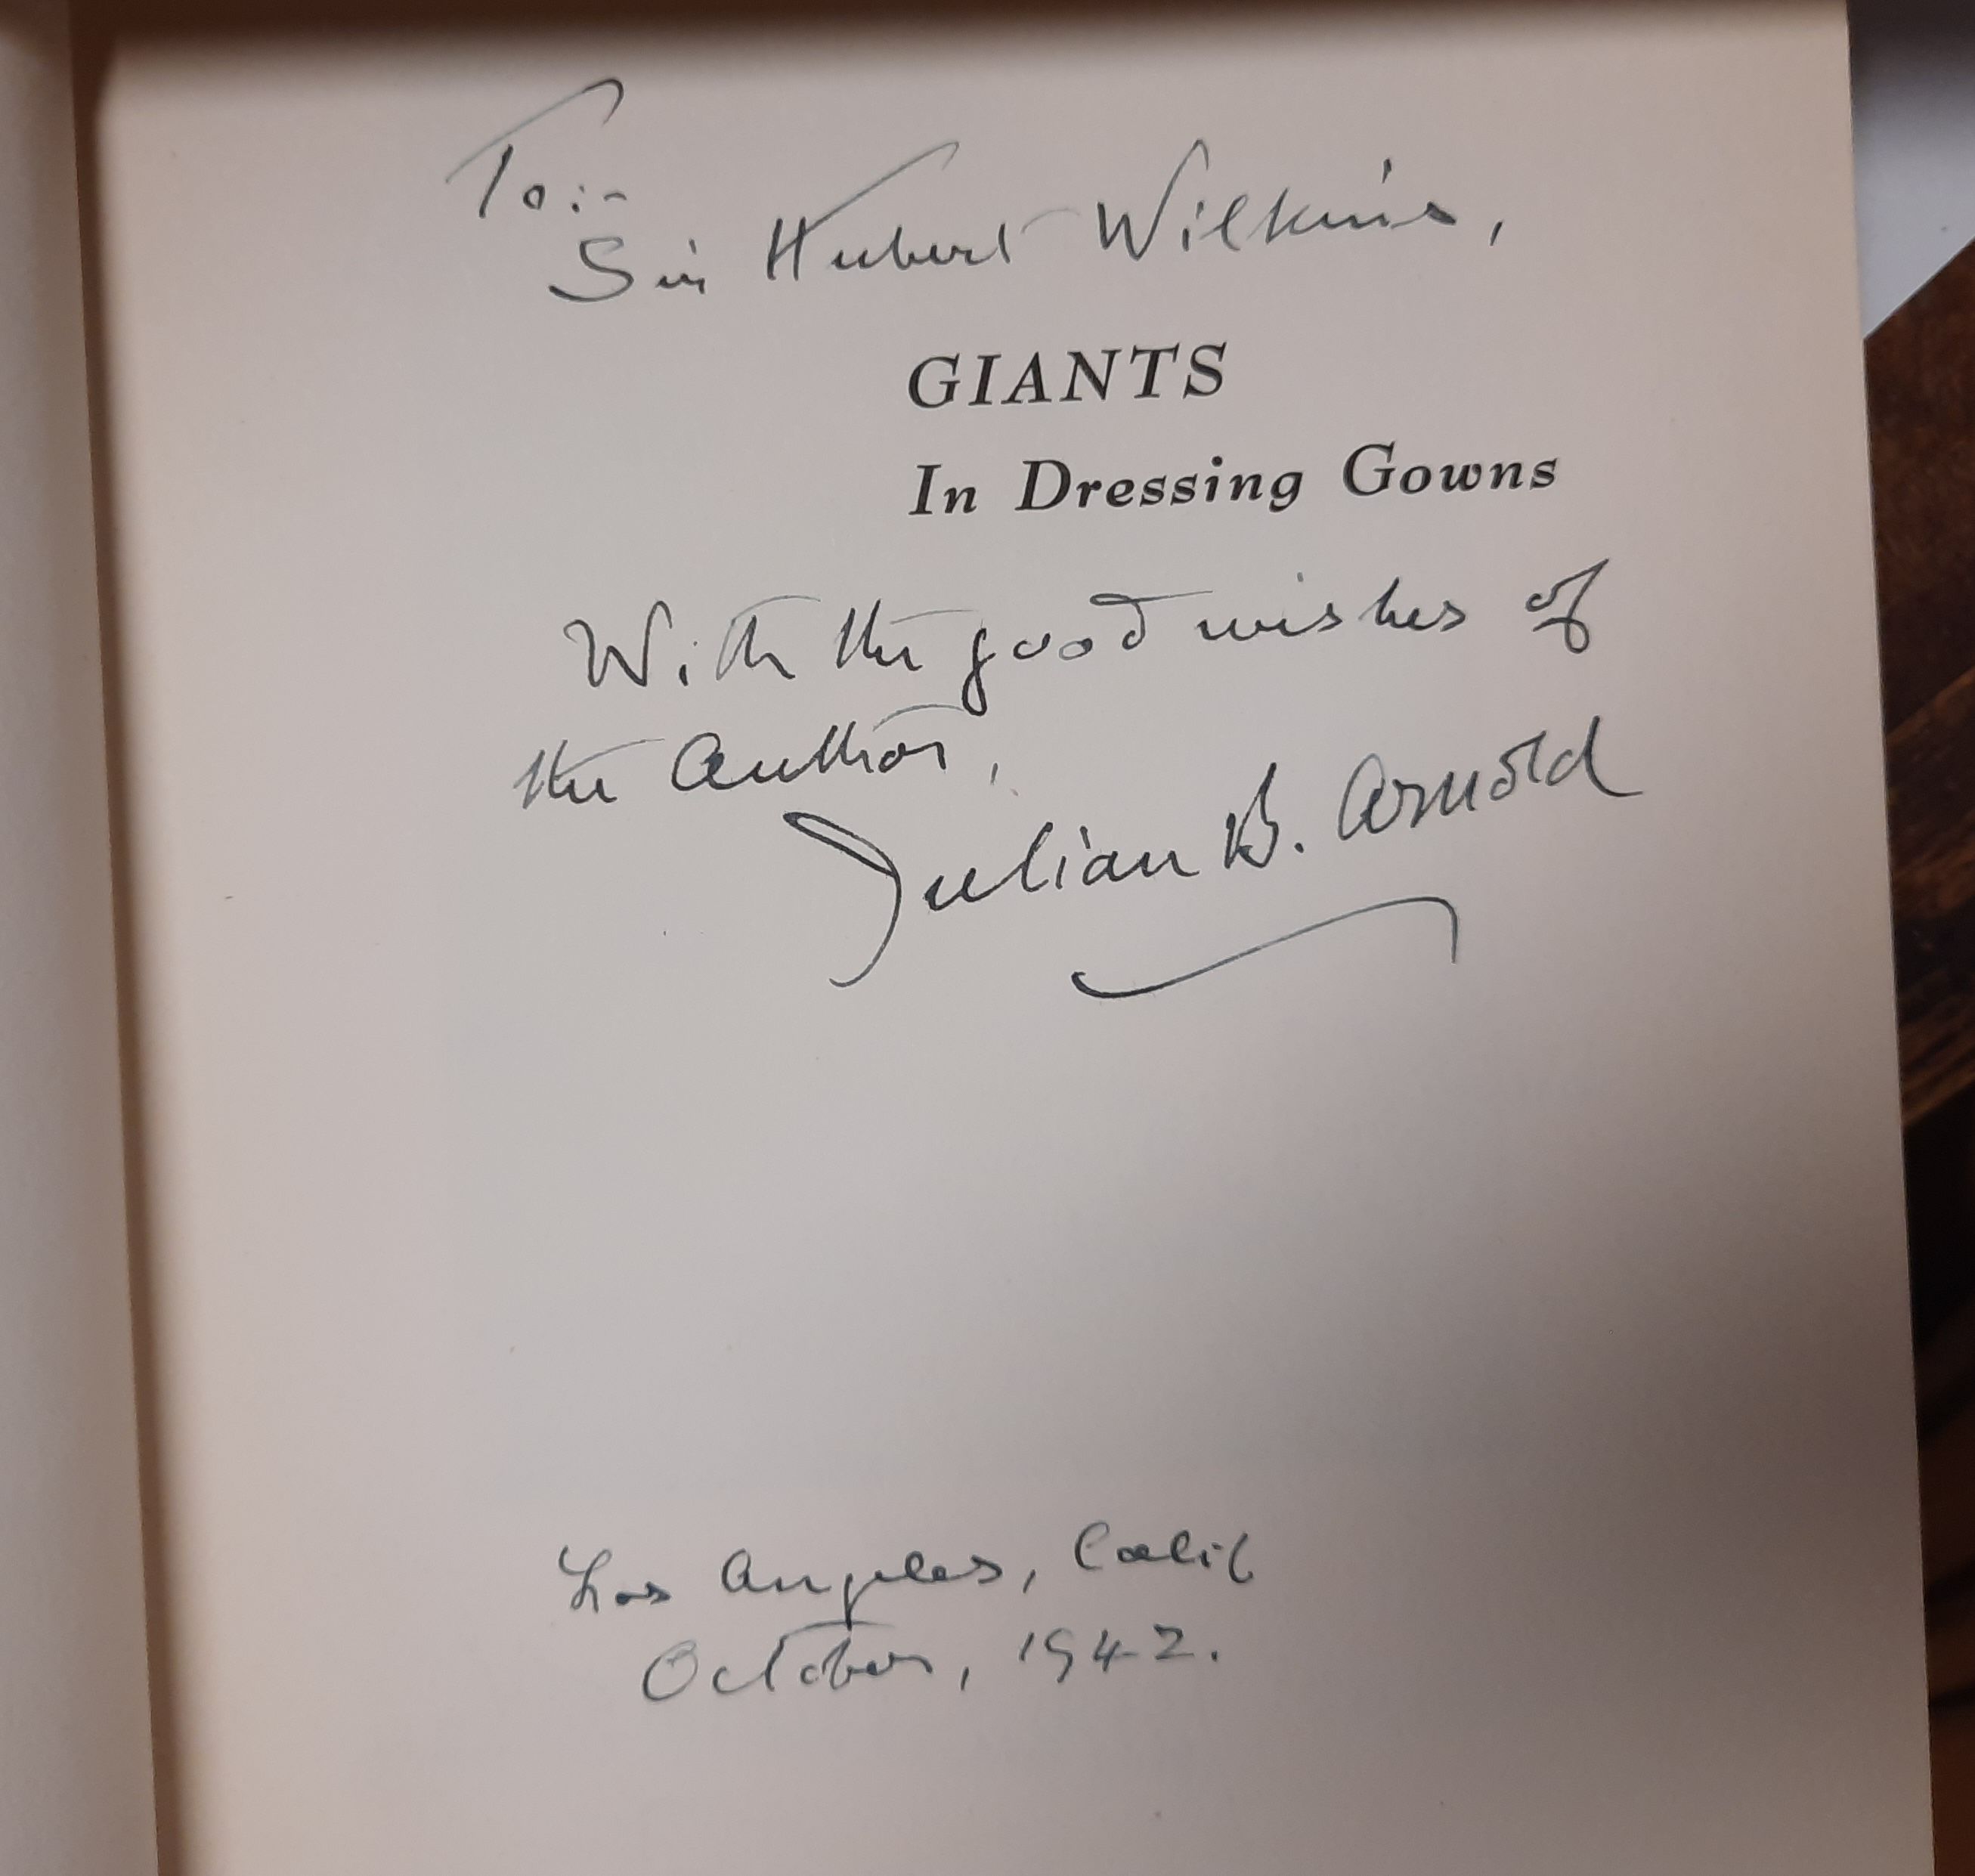 To:-
Sir Hubert Wilkins,
GIANTS
In Dressing Gowns
With the good wishes of
the Author,
Julian B. Arnold
Los Angeles, Calif
October, 1942.